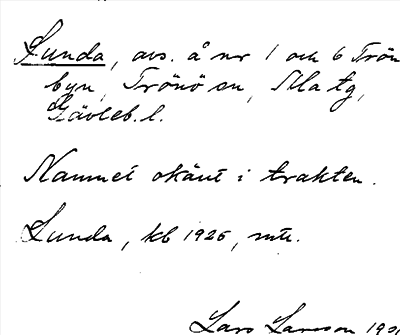 Lunda, avs. å nr 1 och 6 Trön
byn, Trönö sn, Ala tg,
Gävleb. l.
Namnet okänt i trakten.
Lunda, kb 1925, mtl.
Lars Larsson 1931